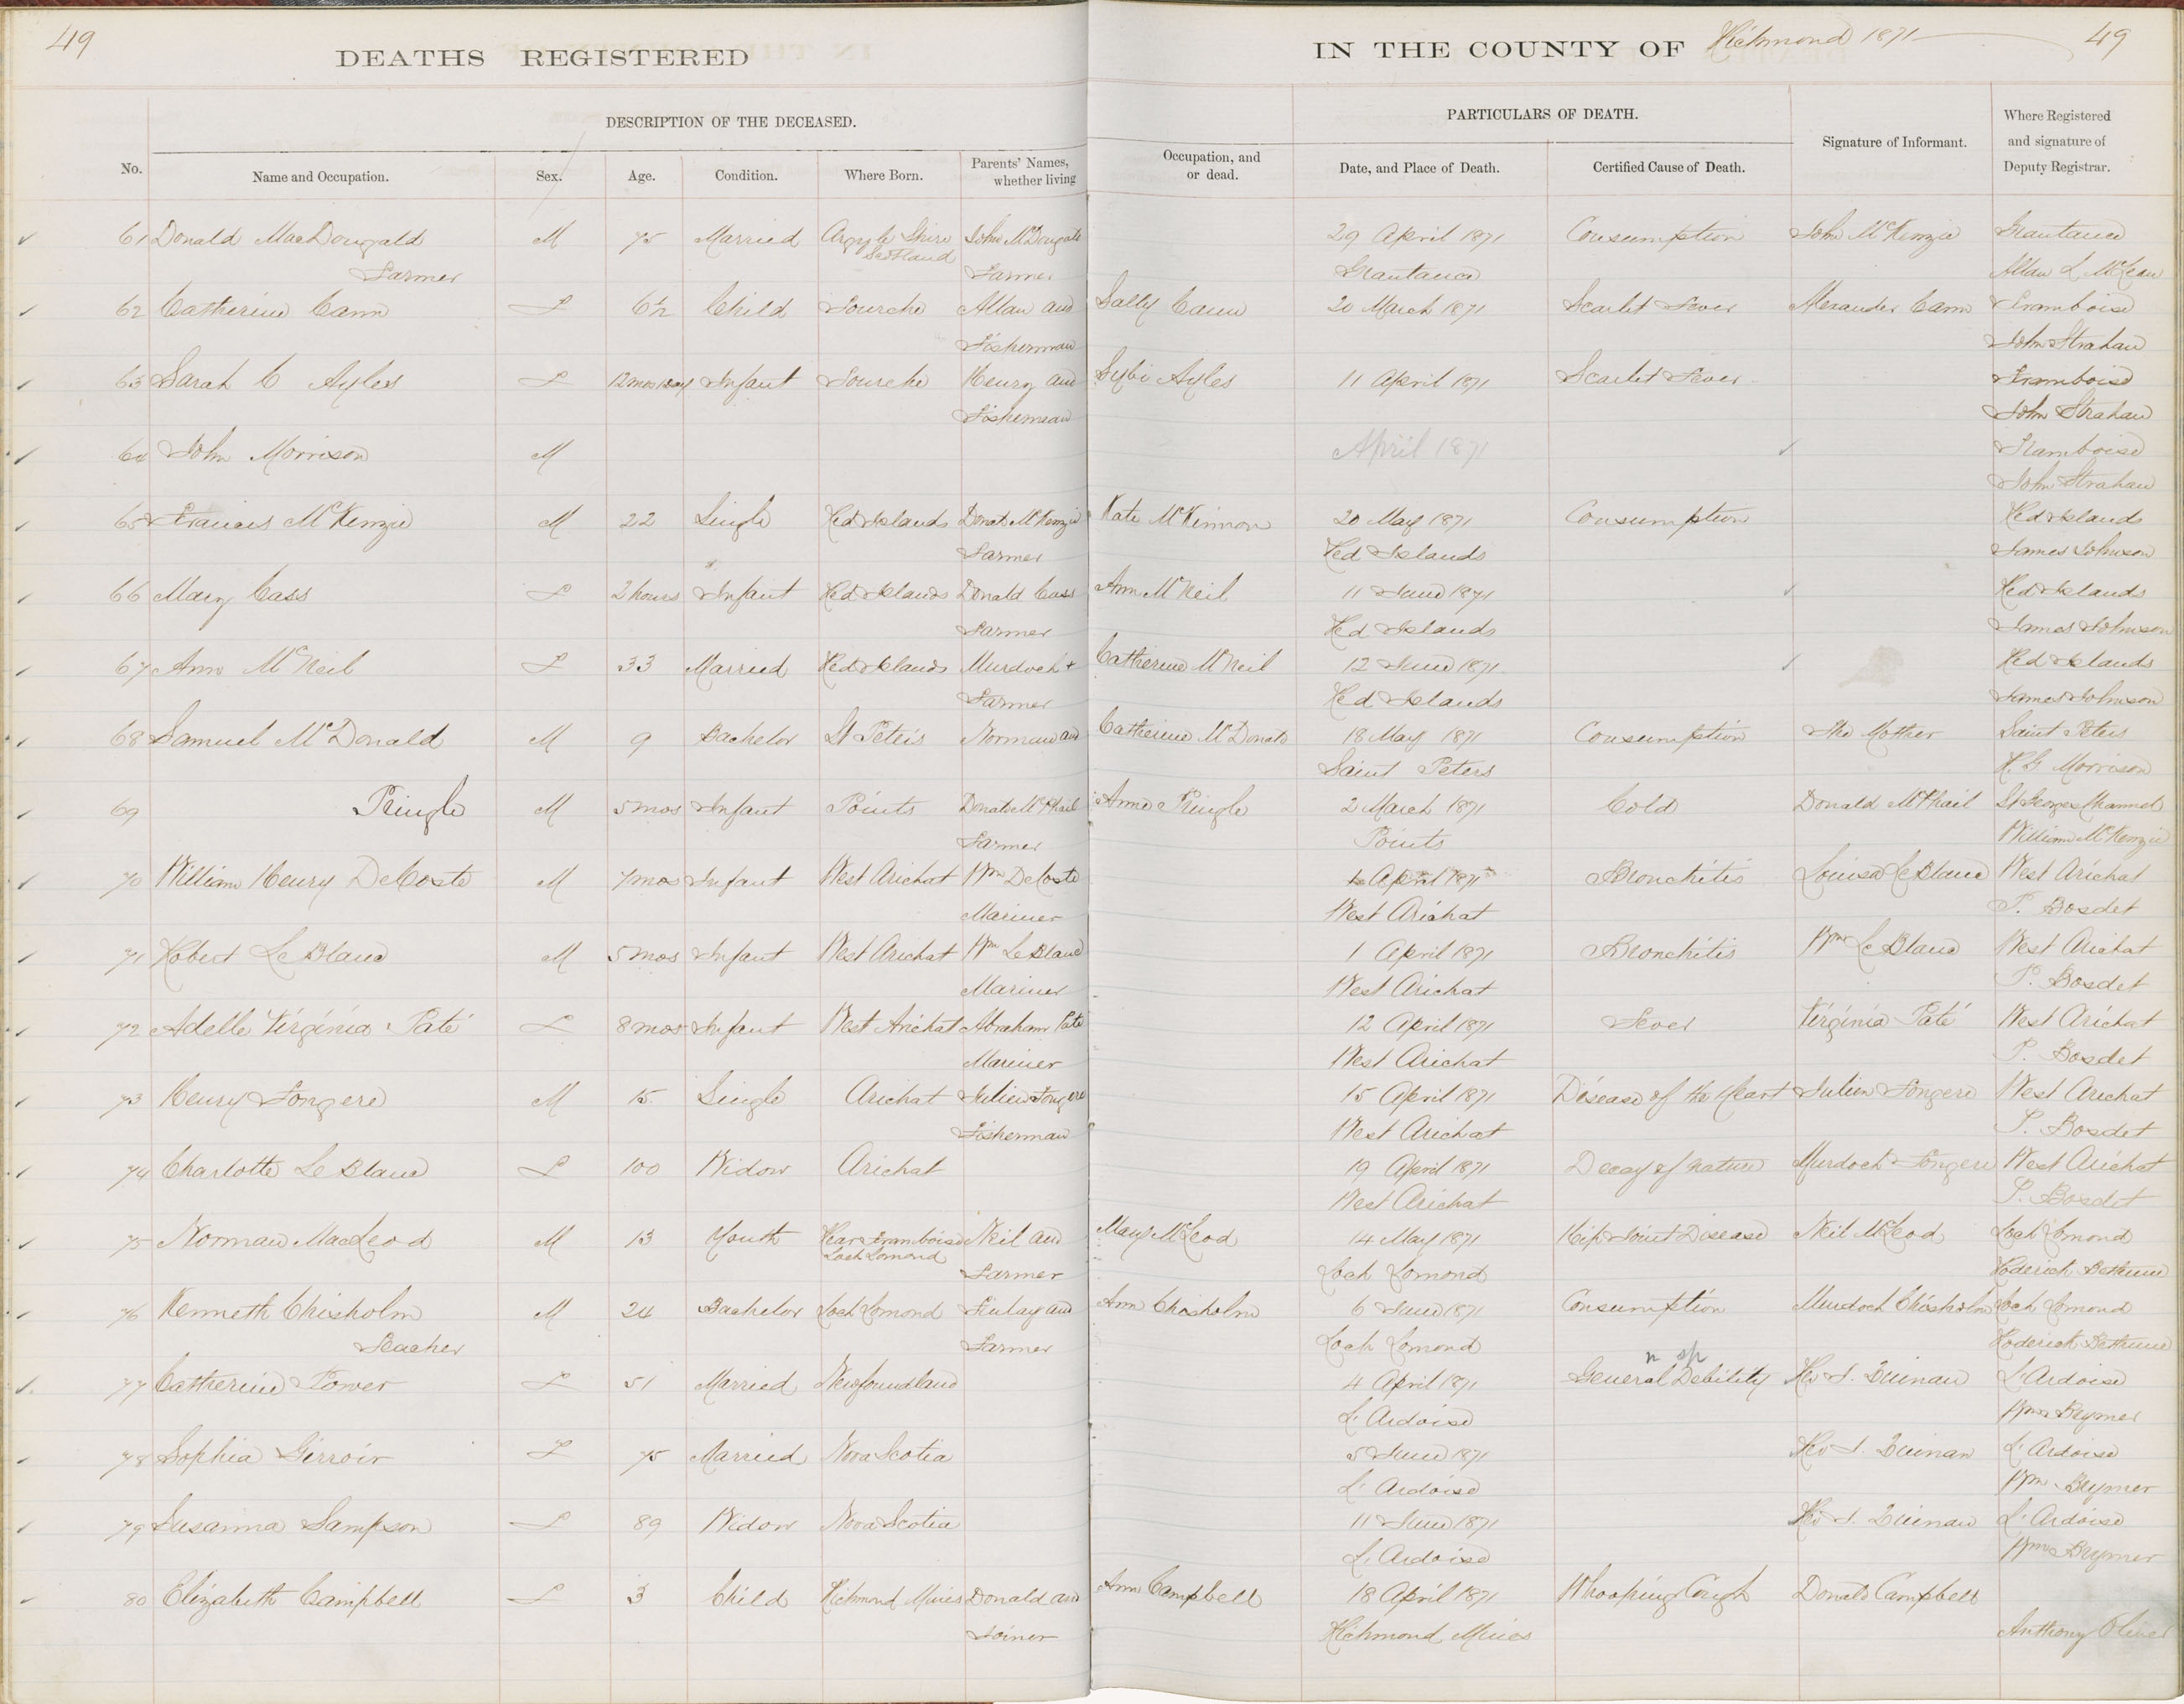 49
DEATHS REGISTERED
IN THE COUNTY OF Richmond 1871
49
DESCRIPTION OF THE DECEASED.
PARTICULARS OF DEATH.
No. Name and Occupation. Sex. Age. Condition. Where Born. Parents' Names, whether living Occupation, and or dead. Date, and Place of Death. Certified Cause of Death. Signature of Informant. Where Registered and signature of Deputy Registrar.
61 Donald MacDougald M 75 Married Argyle Shire John McDougald 29 April 1871 Consumption John McKenzie Grantance
Farmer Scotland Farmer Grantance Allan L McLean
62 Catherine Cann F 6½ Child Fourche Allan and Sally Cann 20 March 1871 Scarlet Fever Alexander Cann Framboise
Fisherman John Strahan
63 Sarah C Ayles F 12 mos 1 day Infant Fourche Henry and Sybi Ayles 11 April 1871 Scarlet Fever Framboise
Fisherman John Strahan
64 John Morrison M April 1871 Framboise
John Strahan
65 Francis McKenzie M 22 Single Red Islands Donald McKenzie Kate McKinnon 20 May 1871 Consumption Red Islands
Farmer Red Islands James Johnson
66 Mary Cass F 2 hours Infant Red Islands Donald Cass Ann McNeil 11 June 1871 Red Islands
Farmer Red Islands James Johnson
67 Ann McNeil F 33 Married Red Islands Murdoch + Catherine McNeil 12 June 1871 Red Islands
Farmer Red Islands James Johnson
68 Samuel McDonald M 9 Bachelor St Peters Norman and Catherine McDonald 18 May 1871 Consumption The Mother Saint Peters
Saint Peters H. G. Morrison
69 Pringle M 5 mos Infant Points Donald McPhail Anne Pringle 2 March 1871 Cold Donald McPhail St Georges Channel
Farmer Points William McKenzie
70 William Henry DeCoste M 7 mos Infant West Arichat Wm DeCoste 1 April 1871 Bronchitis Louisa LeBlanc West Arichat
Mariner West Arichat P. Bosdet
71 Robert LeBlanc M 5 mos Infant West Arichat Wm LeBlanc 1 April 1871 Bronchitis Wm LeBlanc West Arichat
Mariner West Arichat P. Bosdet
72 Adelle Virginia Paté F 8 mos Infant West Arichat Abraham Paté 12 April 1871 Fever Virginia Paté West Arichat
Mariner West Arichat P. Bosdet
73 Henry Fongere M 15 Single Arichat Julien Fongere 15 April 1871 Disease of the Heart Julien Fongere West Arichat
Fisherman West Arichat P. Bosdet
74 Charlotte LeBlanc F 100 Widow Arichat 19 April 1871 Decay of nature Murdoch Fongere West Arichat
West Arichat P. Bosdet
75 Norman MacLeod M 13 Youth Near Framboise Neil and Mary McLeod 14 May 1871 Hip Joint Disease Neil McLeod Loch Lomond
Loch Lomond Farmer Loch Lomond Roderick Bethune
76 Kenneth Chisholm M 24 Bachelor Loch Lomond Finlay and Ann Chisholm 6 June 1871 Consumption Murdoch Chisholm Loch Lomond
Teacher Farmer Loch Lomond Roderick Bethune
n sp
77 Catherine Power F 51 Married Newfoundland 4 April 1871 General Debility Rev J. Quinan L'Ardoise
L'Ardoise Wm Brymer
78 Sophia Girroir F 75 Married Nova Scotia 5 June 1871 Rev J. Quinan L'Ardoise
L'Ardoise Wm Brymer
79 Susanna Sampson F 89 Widow Nova Scotia 11 June 1871 Rev J. Quinan L'Ardoise
L'Ardoise Wm Brymer
80 Elizabeth Campbell F 3 Child Richmond Mines Donald and Ann Campbell 18 April 1871 Whooping Cough Donald Campbell
Joiner Richmond Mines Anthony Oliver